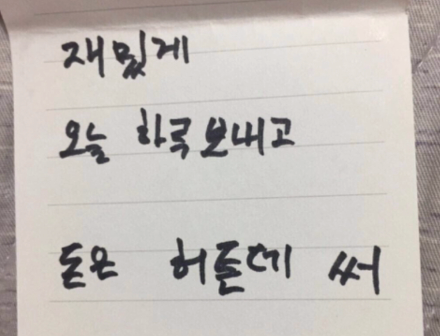 재밌게
오늘 하루보내고
돈은 허튼데 써